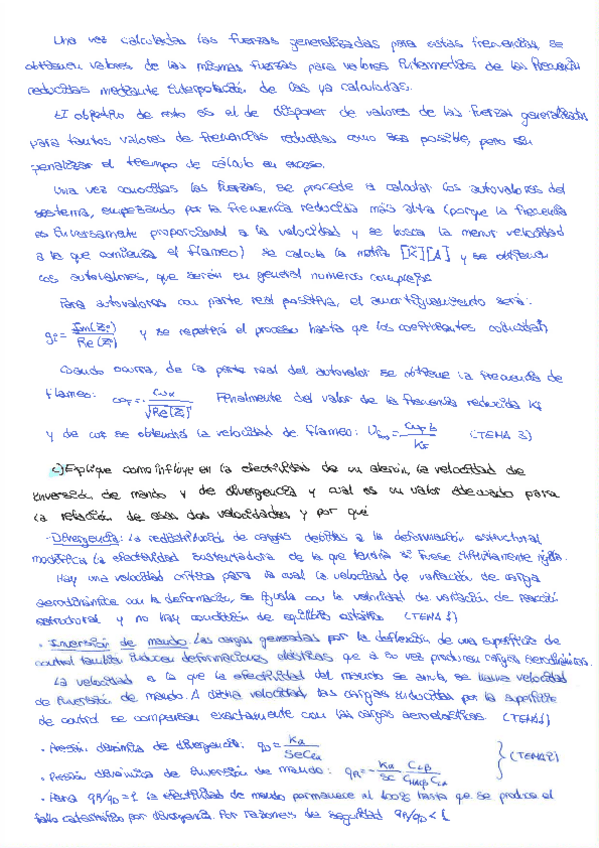 Una vez calculadas las fuerzas generalizadas para estas frecuencias, se
obtienen valores de las mismas fuerzas para valores intermedios de la frecuencia
reducidas mediante interpolación de las ya calculadas.
El objetivo de esto es el de disponer de valores de las fuerzas generalizadas
para tantos valores de frecuencias reducidas como sea posible, pero sin
penalizar el tiempo de cálculo en exceso.
Una vez conocidas las fuerzas, se procede a calcular los autovalores del
sistema, empezando por la frecuencia reducida más alta (porque la frecuencia
es inversamente proporcional a la velocidad y se busca la menor velocidad
a la que comienza el flameo) se calcula la matriz [K][A] y se obtienen
los autovalores, que serán en general numeros complejos
Para autovalores con parte real positiva, el amortiguamiento será:
gi = Im(Zi)/Re(Zi) y se repetirá el proceso hasta que los coeficientes coincidan
Cuando ocurra, de la parte real del autovalor se obtiene la frecuencia de
flameo: ωF = ωα/√Re(Zi) Finalmente del valor de la frecuencia reducida KF
y de ωF se obtendrá la velocidad de flameo: U∞F = ωF b/KF (TEMA 3)
c) Explique como influye en la efectividad de un alerón, la velocidad de
inversión de mando y de divergencia y cual es un valor adecuado para
la relación de esas dos velocidades y por qué
- Divergencia: La redistribución de cargas debidas a la deformación estructural
modifica la efectividad sustentadora de la que tendría si fuese infinitamente rígida.
Hay una velocidad crítica para la cual la velocidad de variación de carga
aerodinámica con la deformación, se iguala con la velocidad de variación de reacción
estructural y no hay condición de equilibrio estático (TEMA 1)
• Inversión de mando: Las cargas generadas por la deflexión de una superficie de
control también inducen deformaciones elásticas que a su vez producen cargas aerodinámicas.
La velocidad a la que la efectividad del mando se anula, se llama velocidad
de inversión de mando. A dicha velocidad, las cargas inducidas por la superficie
de control se compensan exactamente con las cargas aeroelásticas (TEMA1)
• Presión dinámica de divergencia: qD = Kα/SeCLα
• Presión dinámica de inversión de mando: qR = - Kα/SC CLβ/CMβ CLα } (TEMA2)
• Para qR/qD = 1 la efectividad de mando permanece al 100% hasta que se produce el
fallo catastrófico por divergencia. Por razones de seguridad qR/qD < 1